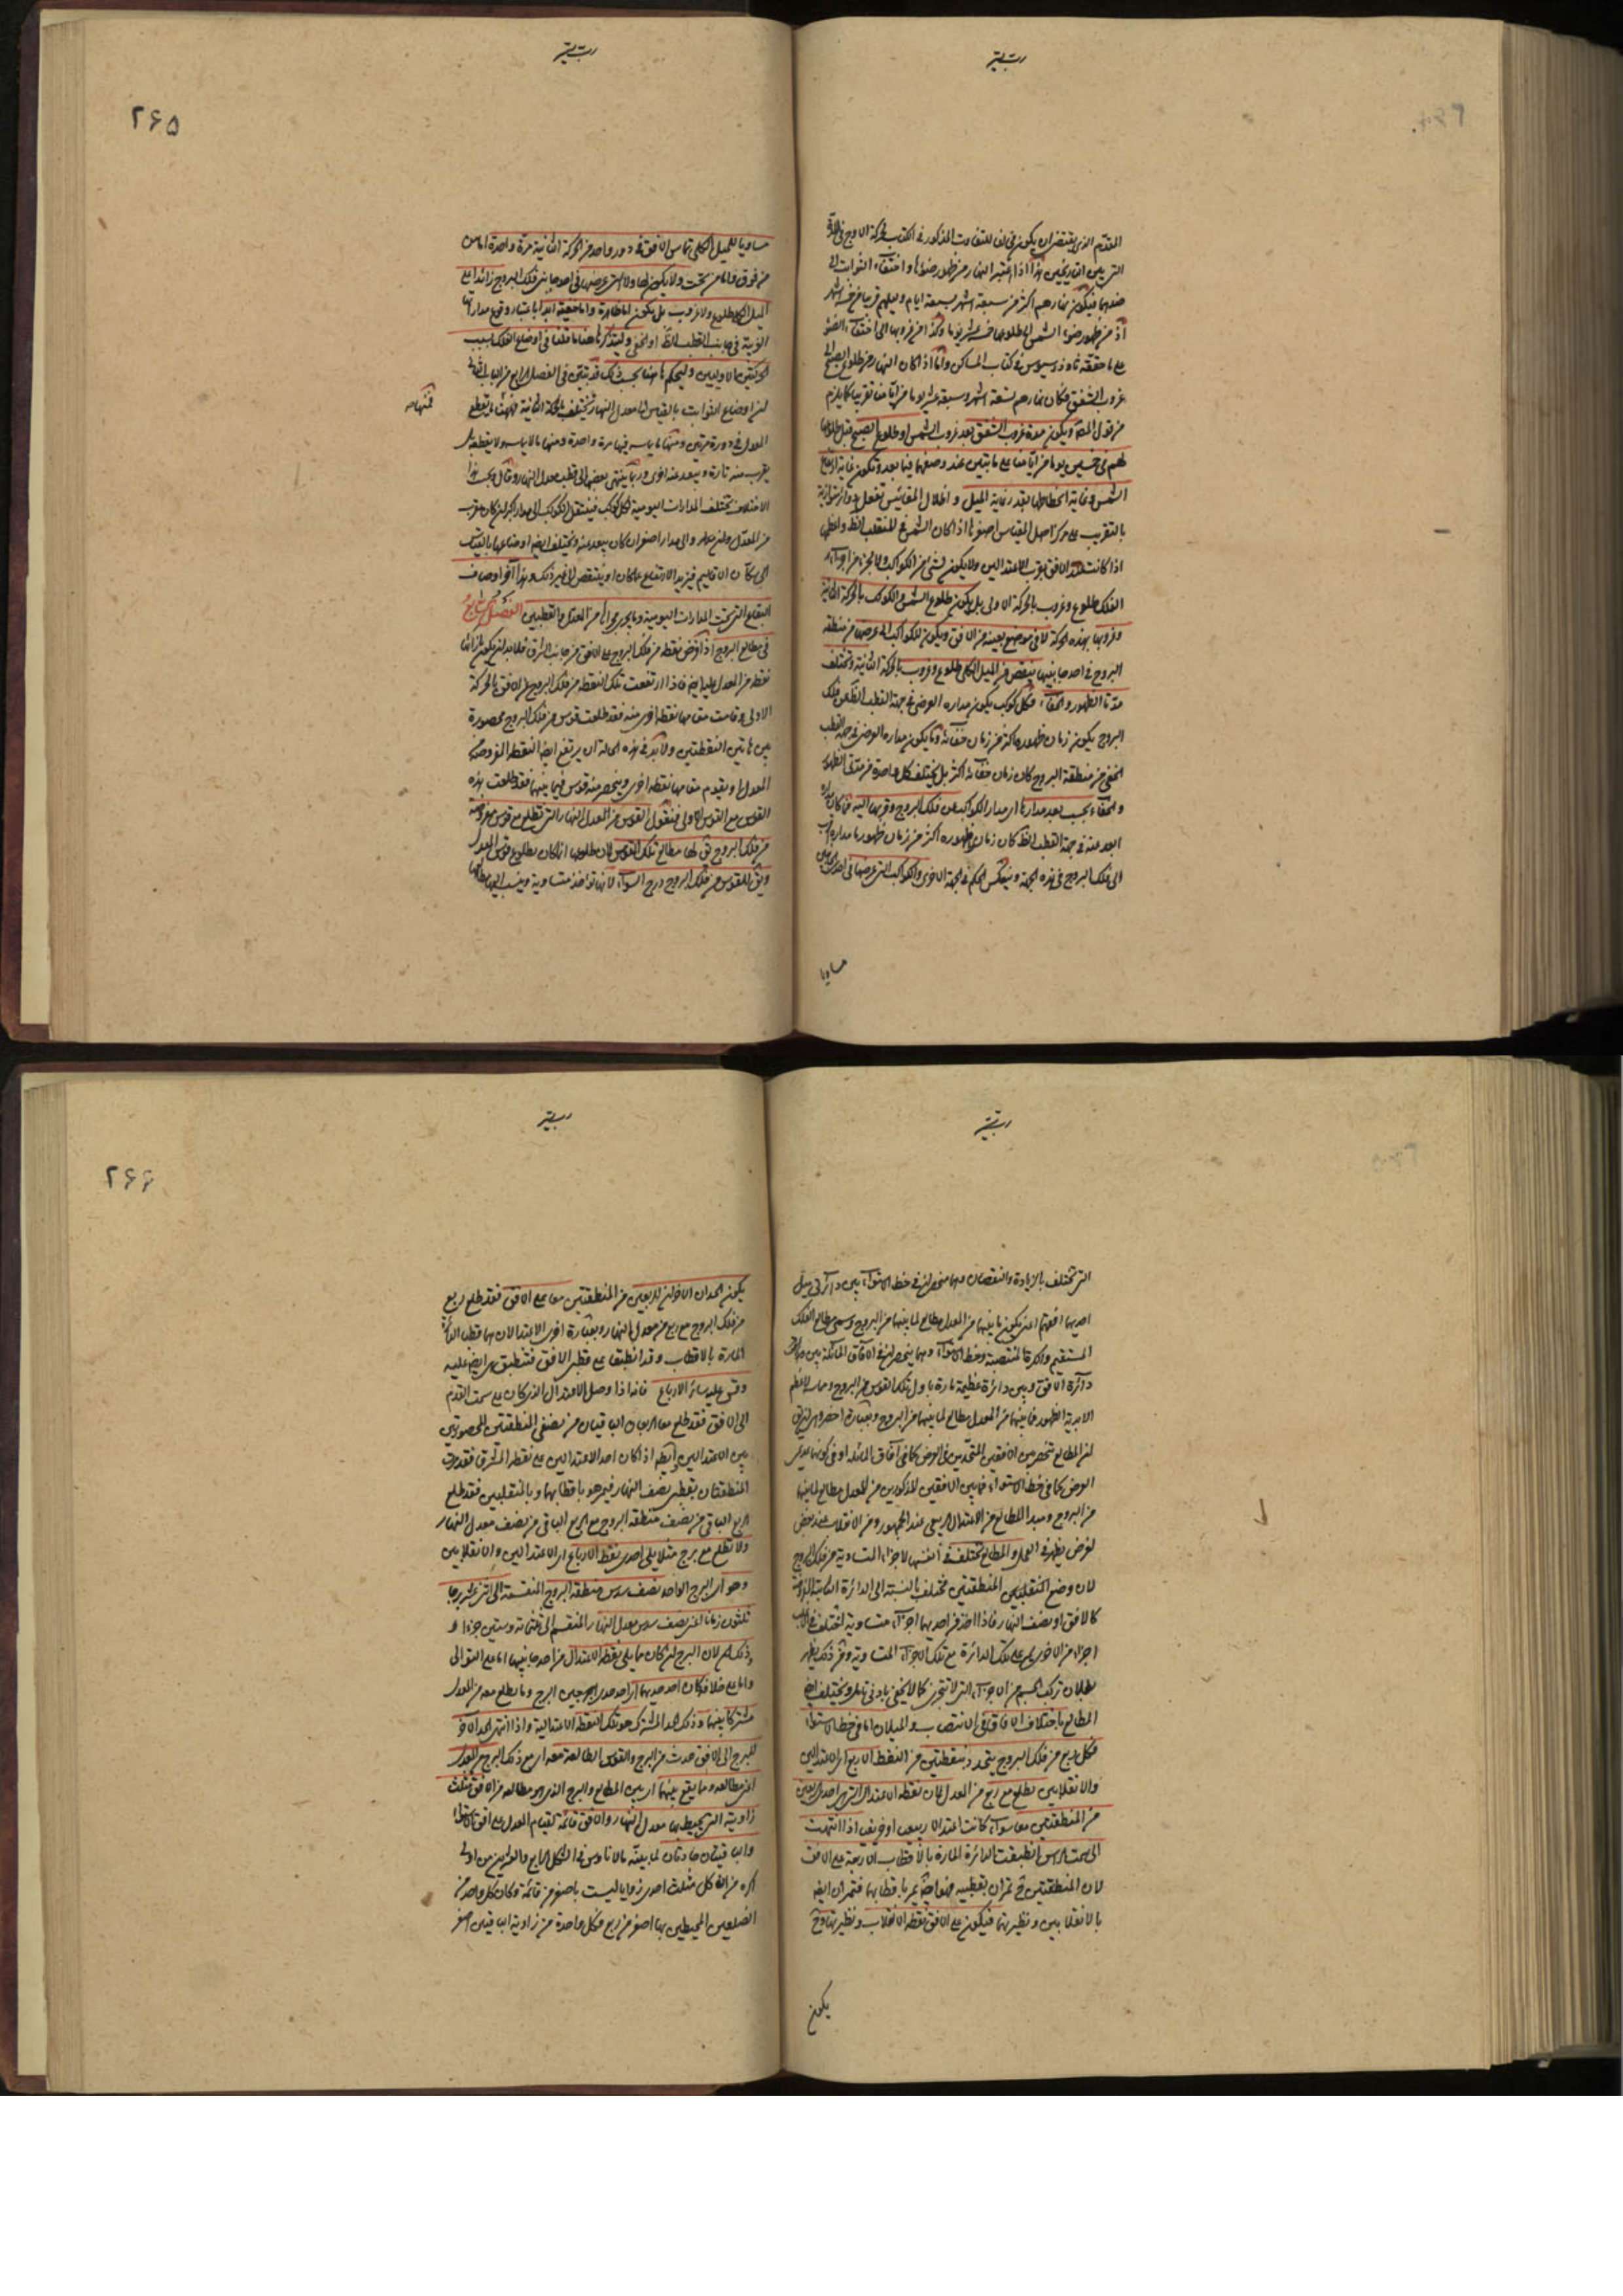 المقدم الذى يقتضى ان يكون فى للتفاوت المذكور فى الكتاب حركة الاوج فى
التى بين التاريخين هذا اذا اعتبر النهار من ظهور ضوئها واختفاء الثوابت الى
ضدهما فيكون نهارهم اكثر من سبعة اشهر بسبعة ايام وليلهم قريبا من خمسة اشهر
اذ من ظهور ضوء الشمس الى طلوعها خمسة عشر يوما وكذا من غروبها الى اختفاء الضوء
على ما حققه ثاوذوسيوس فى كتاب المساكن واما اذا كان النهار من طلوع الصبح الى
غروب الشفق فكان نهارهم تسعة اشهر وسبعة عشر يوما من ايامنا تقريبا كما يلزم
من قول المص ويكون مدة غروب الشفق بعد غروب الشمس او طلوع الصبح قبل طلوعها
لهم فى خمسين يوما من ايامنا على ما يتبين عند وصفهما فيما بعد ويكون غاية ارتفاع
الشمس وغاية انحطاطها بقدر غاية الميل واظلال المقاييس تفعل دوائر متوازية
بالتقريب على مركز اصل المقياس اصغرها اذا كان الشمس فى المنقلب الظ واعظمها
اذا كانت عند الافق بقرب الاعتدالين ولا يكون لشئ من الكواكب ولا لجزء من اجزاء
الفلك طلوع وغروب بالحركة الاولى بل يكون طلوع الشمس والكواكب بالحركة الثانية
وغروبها بهذه الحركة لا فى موضع بعينه من الافق ويكون للكواكب التى عرضها من منطقة
البروج فى احد جانبيها ينقص من الميل الكلى طلوع وغروب بالحركة الثانية وتختلف
مدتا الظهور والخفاء فكل كوكب يكون مداره العرضى فى جهة القطب الظ عن فلك
البروج يكون زمان ظهوره اكثر من زمان خفائه وما يكون مداره العرضى فى جهة القطب
الخفى من منطقة البروج كان زمان خفائه اكثر بل يختلف كل واحدة من مدتى الظهور
والخفاء بحسب بعد مدارها اى مدار الكواكب عن فلك البروج وقربها اليه فما كان مداره
ابعد منه فى جهة القطب الظ كان زمان ظهوره اكثر من زمان ظهور ما مداره اقرب
الى فلك البروج فى هذه الجهة وينعكس الحكم فى الجهة الاخرى والكواكب التى عرضها فى احدى الجهتين
مساويا
٢٦٥
مساويا للميل الكلى تماس الافق فى دور واحد من الحركة الثانية مرة واحدة اما من
من فوق واما من تحت ولا يكون لها ولا لما عرضها فى احد جانبى فلك البروج زائدا على
الميل الكلى طلوع ولا غروب بل يكون اما ظاهرة واما خفية ابدا باعتبار وقوع مداراتها
العرضية فى جانب القطب الظ او الخفى وليتذكر هاهنا ما قلنا فى اوضاع الفلك بسبب
الحركتين الاوليين وليحكم هاهنا بحسب ذلك قد تبين فى الفصل الرابع من الباب الثانى
ان اوضاع الثوابت بالقياس الى معدل النهار تختلف بالحركة الثانية فمنها ما يقطع
فمنها
المعدل فى دورة مرتين ومنها ما يماسه فيها مرة واحدة ومنها ما لا يماسه ولا يقطعه بل
يقرب منه تارة ويبعد عنه اخرى وربما ينتهى بعضها الى قطب معدل النهار وقال وبحسب هذا
الاختلاف تختلف المدارات اليومية لكل كوكب فينتقل الكوكب الى مدار اكبر ان كان يقرب
من المعدل والى مدار اصغر ان كان يبعد عنه وتختلف ايضا اوضاعها بالقياس
الى سكان الاقاليم فيزيد الارتفاع على ما كان او ينتقص الى غير ذلك وهذا آخر اوصاف
البقاع التى تحت المدارات اليومية وما يجرى مجراها من المعدل والقطبين الفصل السابع
فى مطالع البروج اذا فرض نقطة من فلك البروج على الافق من جانب الشرق فلا بد ان يكون هناك
نقطة من المعدل عليه ايضا فاذا ارتفعت تلك النقطة من فلك البروج عن الافق بالحركة
الاولى وقامت مقامها نقطة اخرى منه فقد طلعت قوس من فلك البروج محصورة
بين هاتين النقطتين ولا بد فى هذه الحالة ان يرتفع ايضا النقطة المفروضة
المعدل ويقوم مقامها نقطة اخرى وينحصر منه قوس فيما بينهما فقد طلعت هذه
القوس مع القوس الاولى فنقول القوس من المعدل النهار التى تطلع مع قوس مفروضة
من فلك البروج يق لها مطالع تلك القوس لان طلوعها انما كان بطلوع قوس المعدل
ويق للقوس من فلك البروج درج السواء لانها تؤخذ متساوية وينسب اليها مطالعها
التى تختلف بالزيادة والنقصان وهما منحصران فى خط الاستواء بين دائرتى ميل
احديهما افقهم اعنى يكون ما بينهما من المعدل مطالع لما بينهما من البروج وتسمى مطالع الفلك
المستقيم والكرة المنتصبة وخط الاستواء وهما ينحصران فى الآفاق المائلة بين
دائرة الافق وبين دائرة عظيمة مارة باول تلك القوس من البروج ومماسة لاعظم
الابدية الظهور فما بينهما من المعدل مطالع لما بينهما من البروج وبعبارة اخصر وهى ان
ان المطالع تنحصر بين الافقين المتحدين فى العرض كما فى آفاق المائلة او فى كونهما عديمى
العرض كما فى خط الاستواء فما بين الافقين المذكورين من المعدل مطالع لما بينهما
من البروج ومبدأ المطالع من الاعتدال الربيعى عند الجمهور ومن الانقلاب عند بعض
لغرض يظهر فى العمل والمطالع تختلف فى انفسها لاجزاء المتساوية من فلك البروج
لان وضع المنطقتين مختلف بالنسبة الى الدائرة
كالافق او نصف النهار فاذا اخذ من احديهما اجزاء متساوية اختلف
اجزاء من الاخرى تمر على تلك الدائرة مع تلك الاجزاء المتساوية ومن ذلك يظهر
بطلان تركب الجسم من الاجزاء التى لا تتجزى كما لا يخفى بادنى تامل وتختلف ايضا
المطالع باختلاف الآفاق فى الانتصاب والميلان اما فى خط الاستواء
فكل ربع من فلك البروج يتحدد بنقطتين من النقط الاربع اى الاعتدالين
والانقلابين يطلع مع ربع من المعدل لان نقطة الاعتدال التى هى احدى
من المنطقتين معا سواء كانت اعتدالا ربيعى او خريفى اذا انتهت
الى سمت الرأس انطبقت الدائرة المارة بالاقطاب الاربعة على الافق
لان المنطقتين ح تمران بقطبيه فهو ايضا يمر باقطابهما فتمر ان ايضا
بالانقلابين ونظيرتهما فيكون على الافق نقطة الانقلاب ونظيرتها وح
يكون
٢٦٦
يكون الحدان الآخران للربعين من المنطقتين معا على الافق فقد طلع ربع
من فلك البروج مع ربع من معدل النهار وبعبارة اخرى الاعتدالان هما قطبا الدائرة
المارة بالاقطاب وقد انطبقا على قطبى الافق فتنطبق هى ايضا عليه
وقس عليه سائر الارباع فانه اذا وصل الاعتدال الذى كان على سمت القدم
الى الافق فقد طلع معا الربعان الباقيان من نصفى المنطقتين المحصورتين
بين الاعتدالين وايضا اذا كان احد الاعتدالين على نقطة المشرق فقد مرت
المنطقتان بقطبى نصف النهار فيمر هو باقطابهما وبالمنقلبين فقد طلع
الربع الباقى من نصف منطقة البروج مع الربع الباقى من نصف معدل النهار
ولا تطلع مع برج مثلا يلى احدى نقط الارباع اى الاعتدالين والانقلابين
وهو اى البرج الواحد نصف سدس منطقة البروج المنقسمة الى اثنى عشر برجا
ثلثون زمانا اعنى نصف سدس معدل النهار المنقسم الى ثلثمائة وستين جزءا
وذلك لان البرج ان كان مما يلى نقطة الاعتدال من احد جانبيها اما على التوالى
واما على خلافه كان احد حديهما اى احد حدى البرج وما يطلع معه من المعدل
مشتركا بينهما وذلك الحد المشترك هو تلك النقطة الاعتدالية واذا انتهى الحد الآخر
للبرج الى الافق حدث من البرج والقوس الطالعة معه اى مع ذلك البرج من المعدل
اعنى مطالعه وما يقع بينهما اى بين المطالع والبرج الذى هو مطالعه من الافق مثلث
زاويته التى يحيط بها معدل النهار والافق قائمة لقيام المعدل على افق الاستواء
والباقيتان حادتان لما بينه مالاناوس فى الشكل الرابع والعشرين من اولى
اكره من ان كل مثلث احدى زواياه ليست باصغر من قائمة وكان كل واحد من
الضلعين المحيطين بها اصغر من ربع فكل واحدة من زاويتيه الباقيتين اصغر